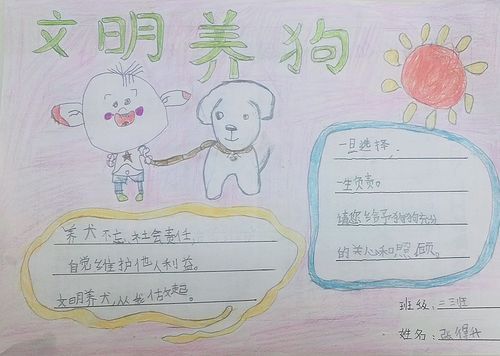 文明养狗
一旦选择.
一生负责。
请您给予狗狗充分
的关心和照顾。
养犬不忘社会责任
自觉维护他人利益。
文明养犬,从我做起。
班级:二三班
姓名:张得升